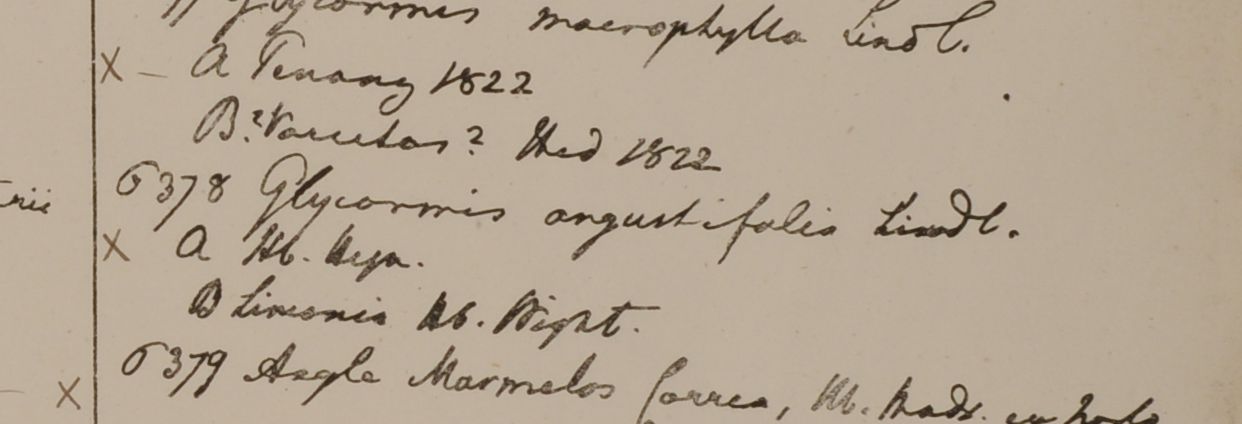 Glycosmis macrophylla Lindl.
X – A Penang 1822
B? Varietas? Hed 1822
6378 Glycosmis angustifolia Lindl.
rii
X A Hb. Heyn.
B Limonia Hb. Wight.
6379 Aegle Marmelos Correa, Hb. Madr.
X